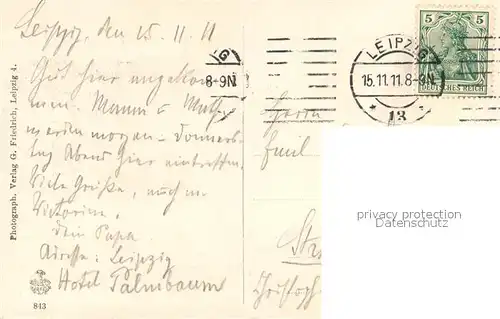 Leipzig, den 15.11.11
Gut hier angekom-
men. Mama u. Muth
werden morgen - Donners-
tag Abend hier eintreffen.
Viele Grüße, auch an
Victorine,
dein Papa.
Adresse: Leipzig
Hotel Palmbaum
843
Photograph. Verlag G. Friedrich, Leipzig 4.
8-9N
5 5
DEUTSCHES REICH
LEIPZIG
15.11.11.8-9N.
* 13
Herrn
Emil
privacy protection
Datenschutz
Str
Christoph